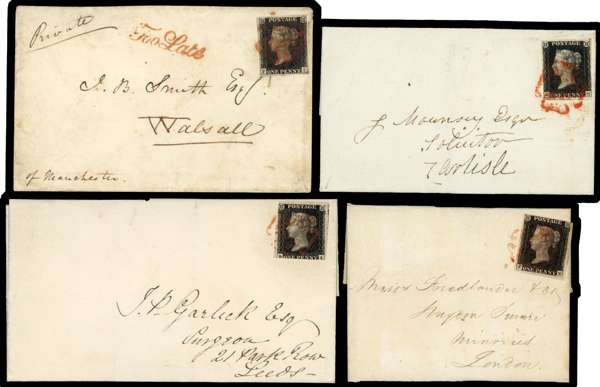 Private
Too Late
POSTAGE
ONE PENNY
J. B. Smith Esqr.
Walsall
of Manchester.
POSTAGE
ONE PENNY
J Mounsey Esqr
Solicitor
Carlisle
POSTAGE
ONE PENNY
J. P. Garlick Esq
Surgeon
21 Park Row
Leeds-
POSTAGE
ONE PENNY
Messrs Friedlander & Co
Square
Minories
London.